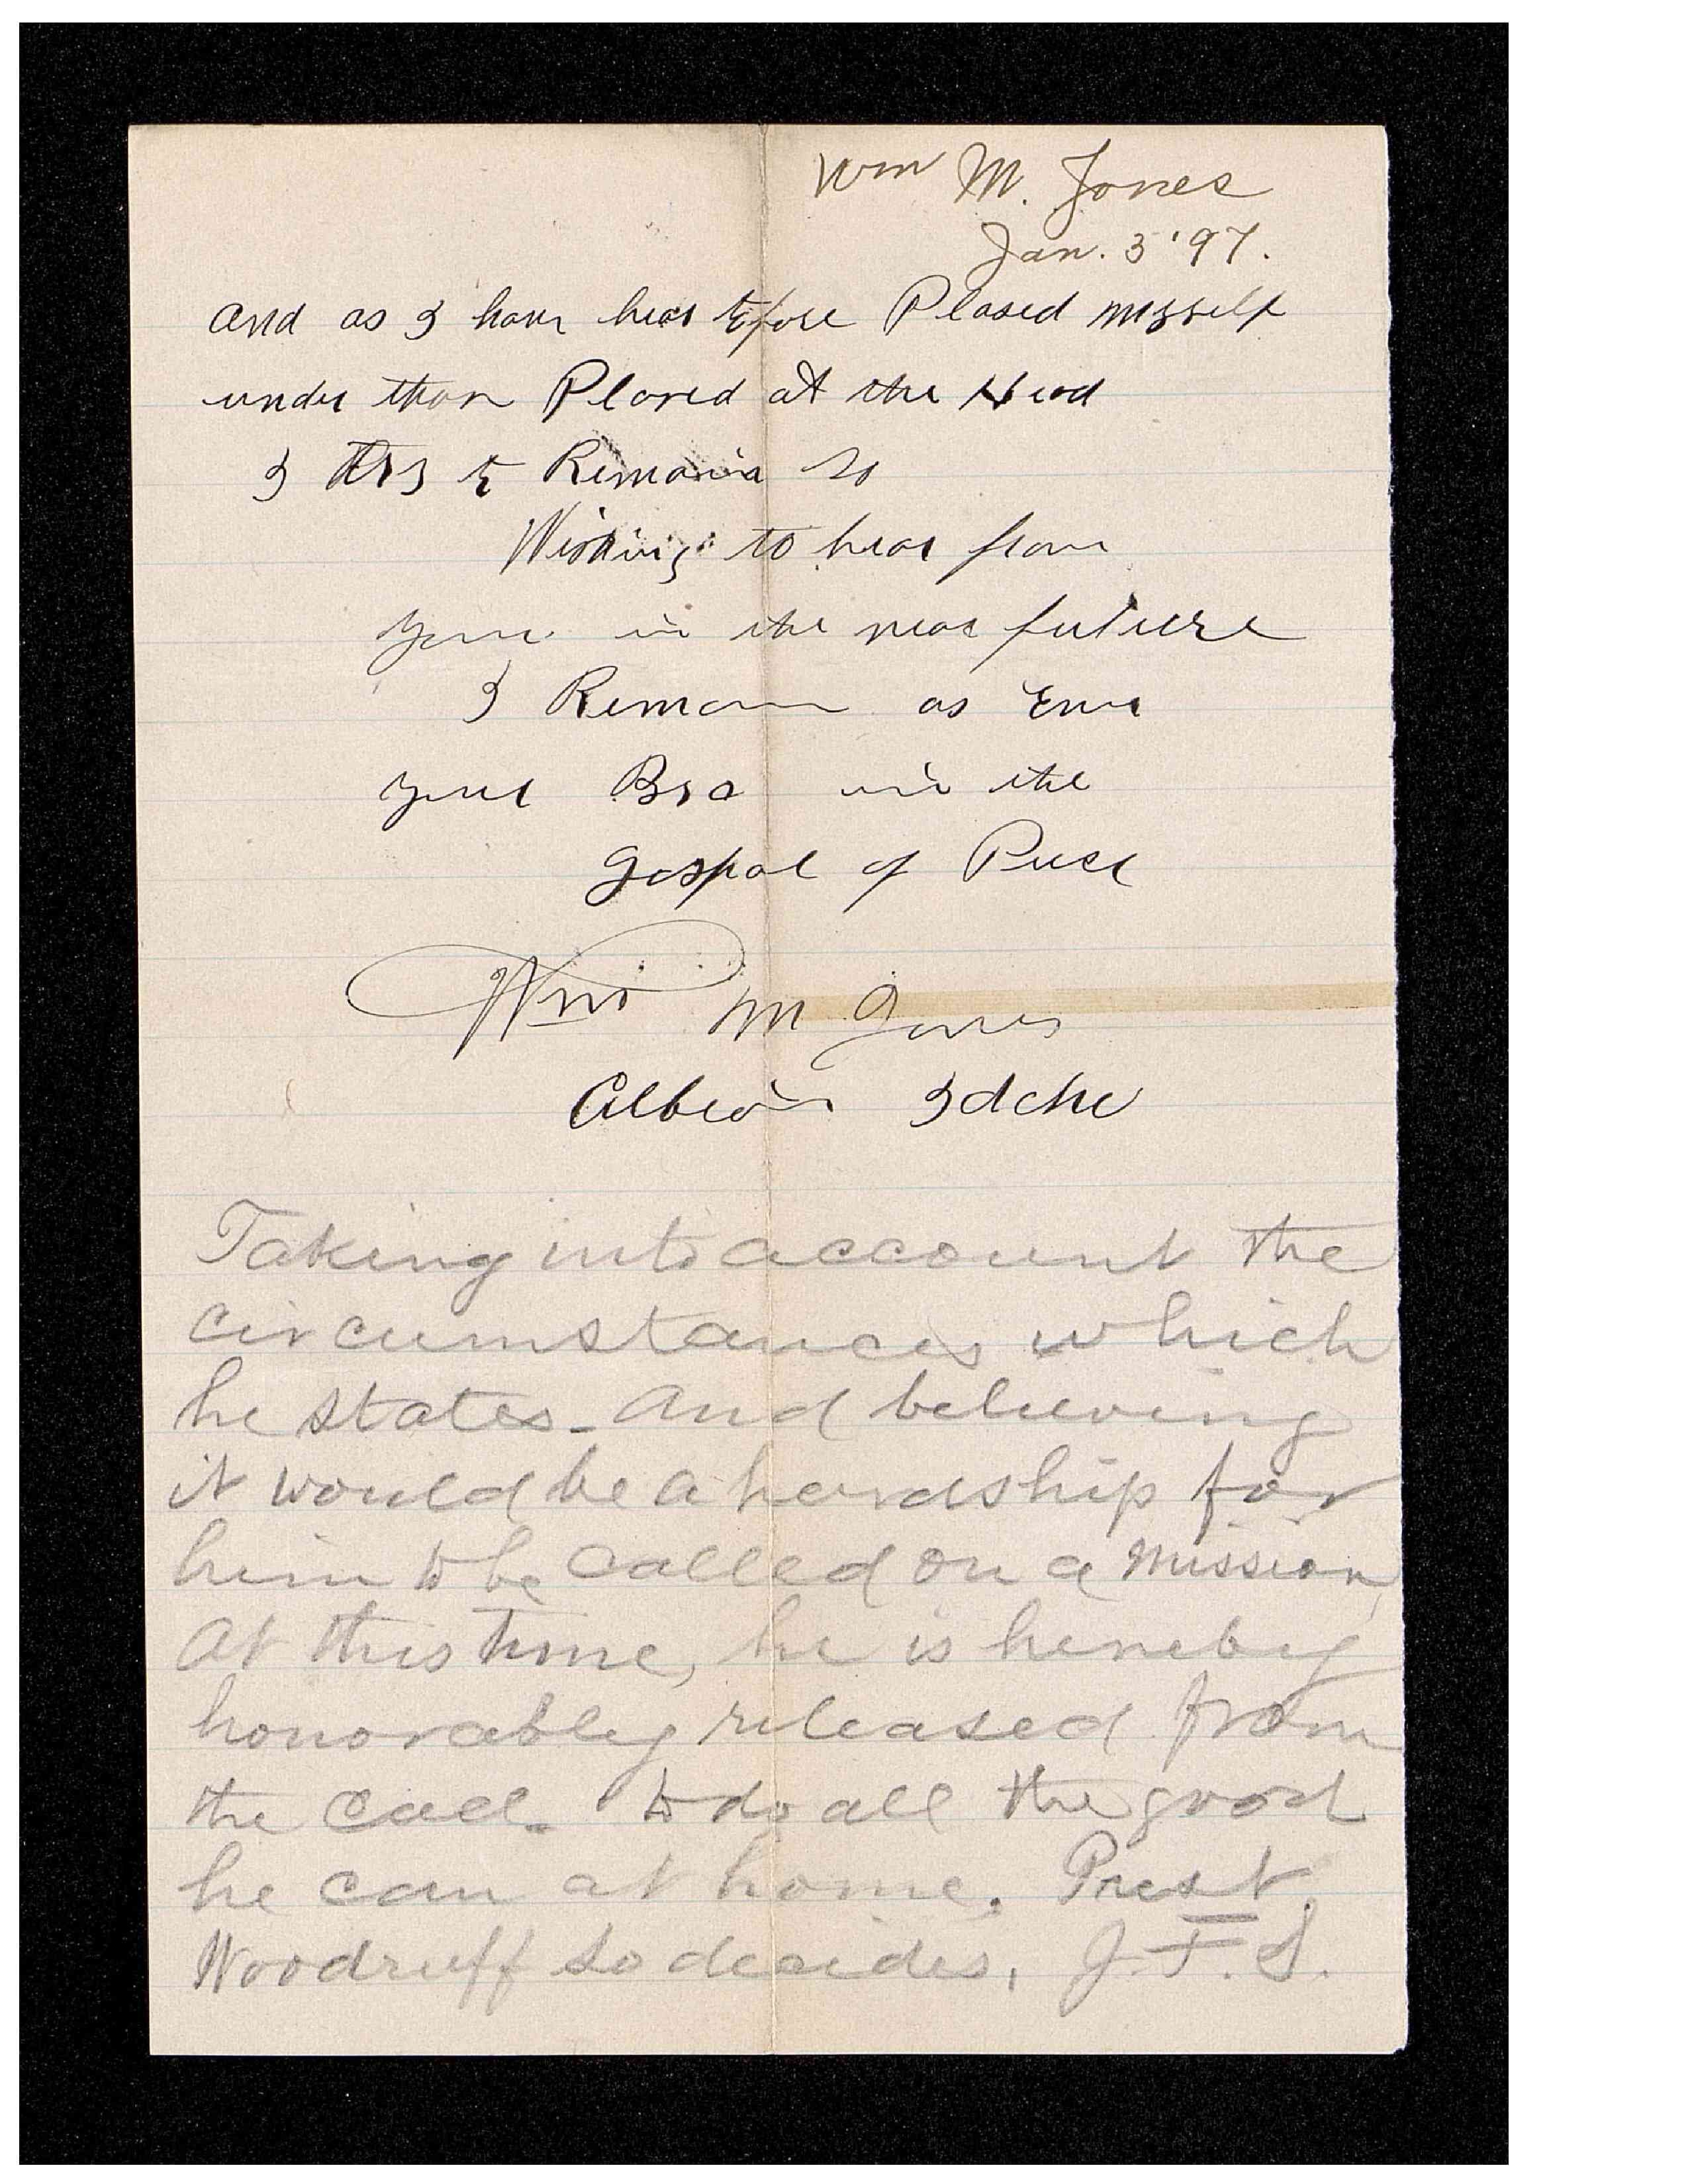 Wm M. Jones
Jan. 3 '97.
and as I have hear tofore Plased mysself
under thos Plased at the Head
I try to Remain so
Wishing to hear from
you in the near future
I Remain as Ever
your Bro in the
Gospal of Pease
Wm M Jones
Albion Idaho
Taking into account the
circumstances which
he states - And believing
it would be a hardship for
him to be called on a mission
at this time, he is hereby
honorably released from
the call - to do all the good
he can at home. Prest.
Woodruff so decides, J. F. S.